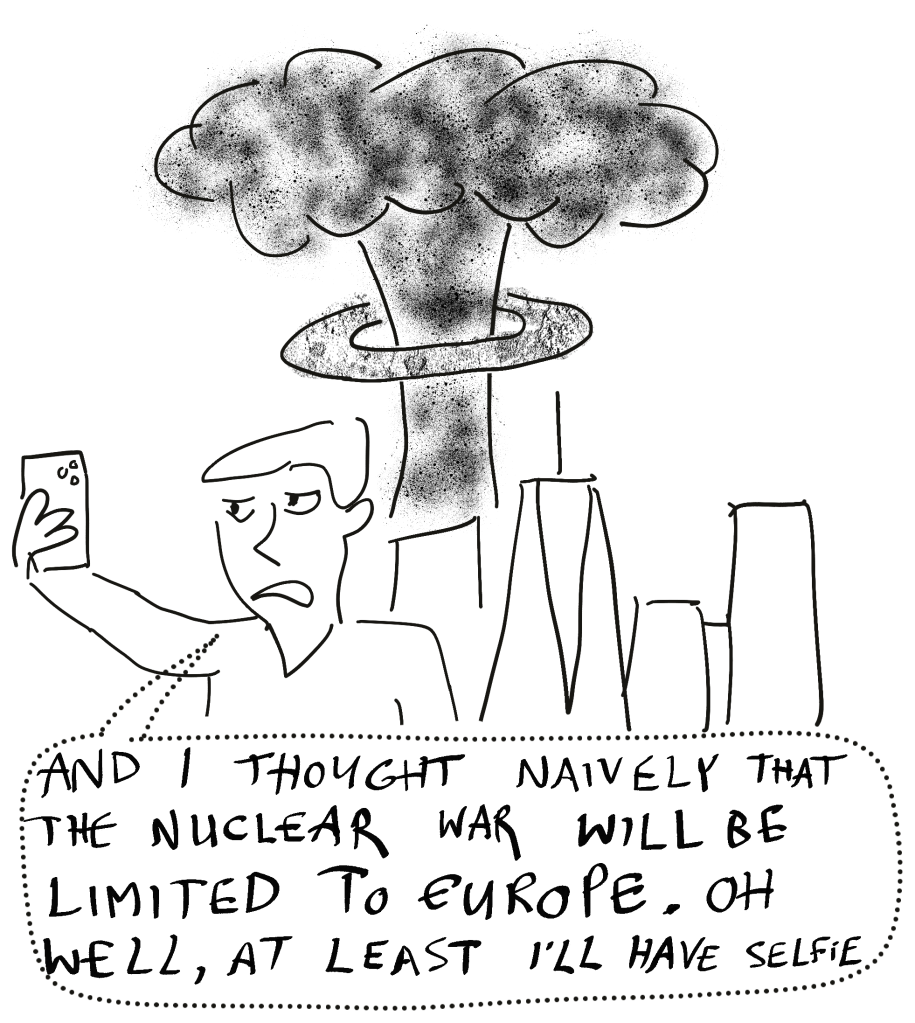 AND I THOUGHT NAIVELY THAT
THE NUCLEAR WAR WILL BE
LIMITED TO EUROPE. OH
WELL, AT LEAST I'LL HAVE SELFIE